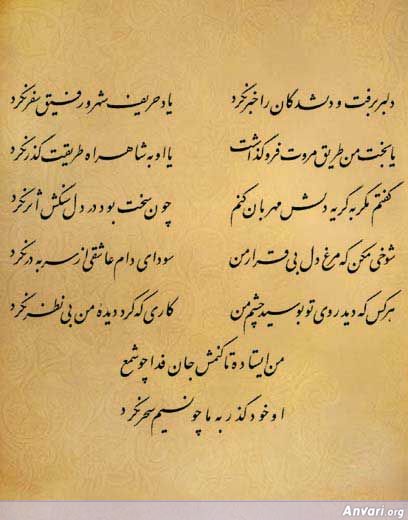 دلبر برفت و دلشدگان را خبر نکرد یاد حریف شهر و رفیق سفر نکرد
یا بخت من طریق مروت فروگذاشت یا او به شاهراه طریقت گذر نکرد
گفتم مگر به گریه دلش مهربان کنم چون سخت بود در دل سنگش اثر نکرد
شوخی مکن که مرغ دل بی قرار من سودای دام عاشقی از سر به در نکرد
هر کس که دید روی تو بوسید چشم من کاری که کرد دیدهٔ من بی نظر نکرد
من ایستاده تا کنمش جان فدا چو شمع
او خود گذر به ما چو نسیم سحر نکرد
Anvari.org